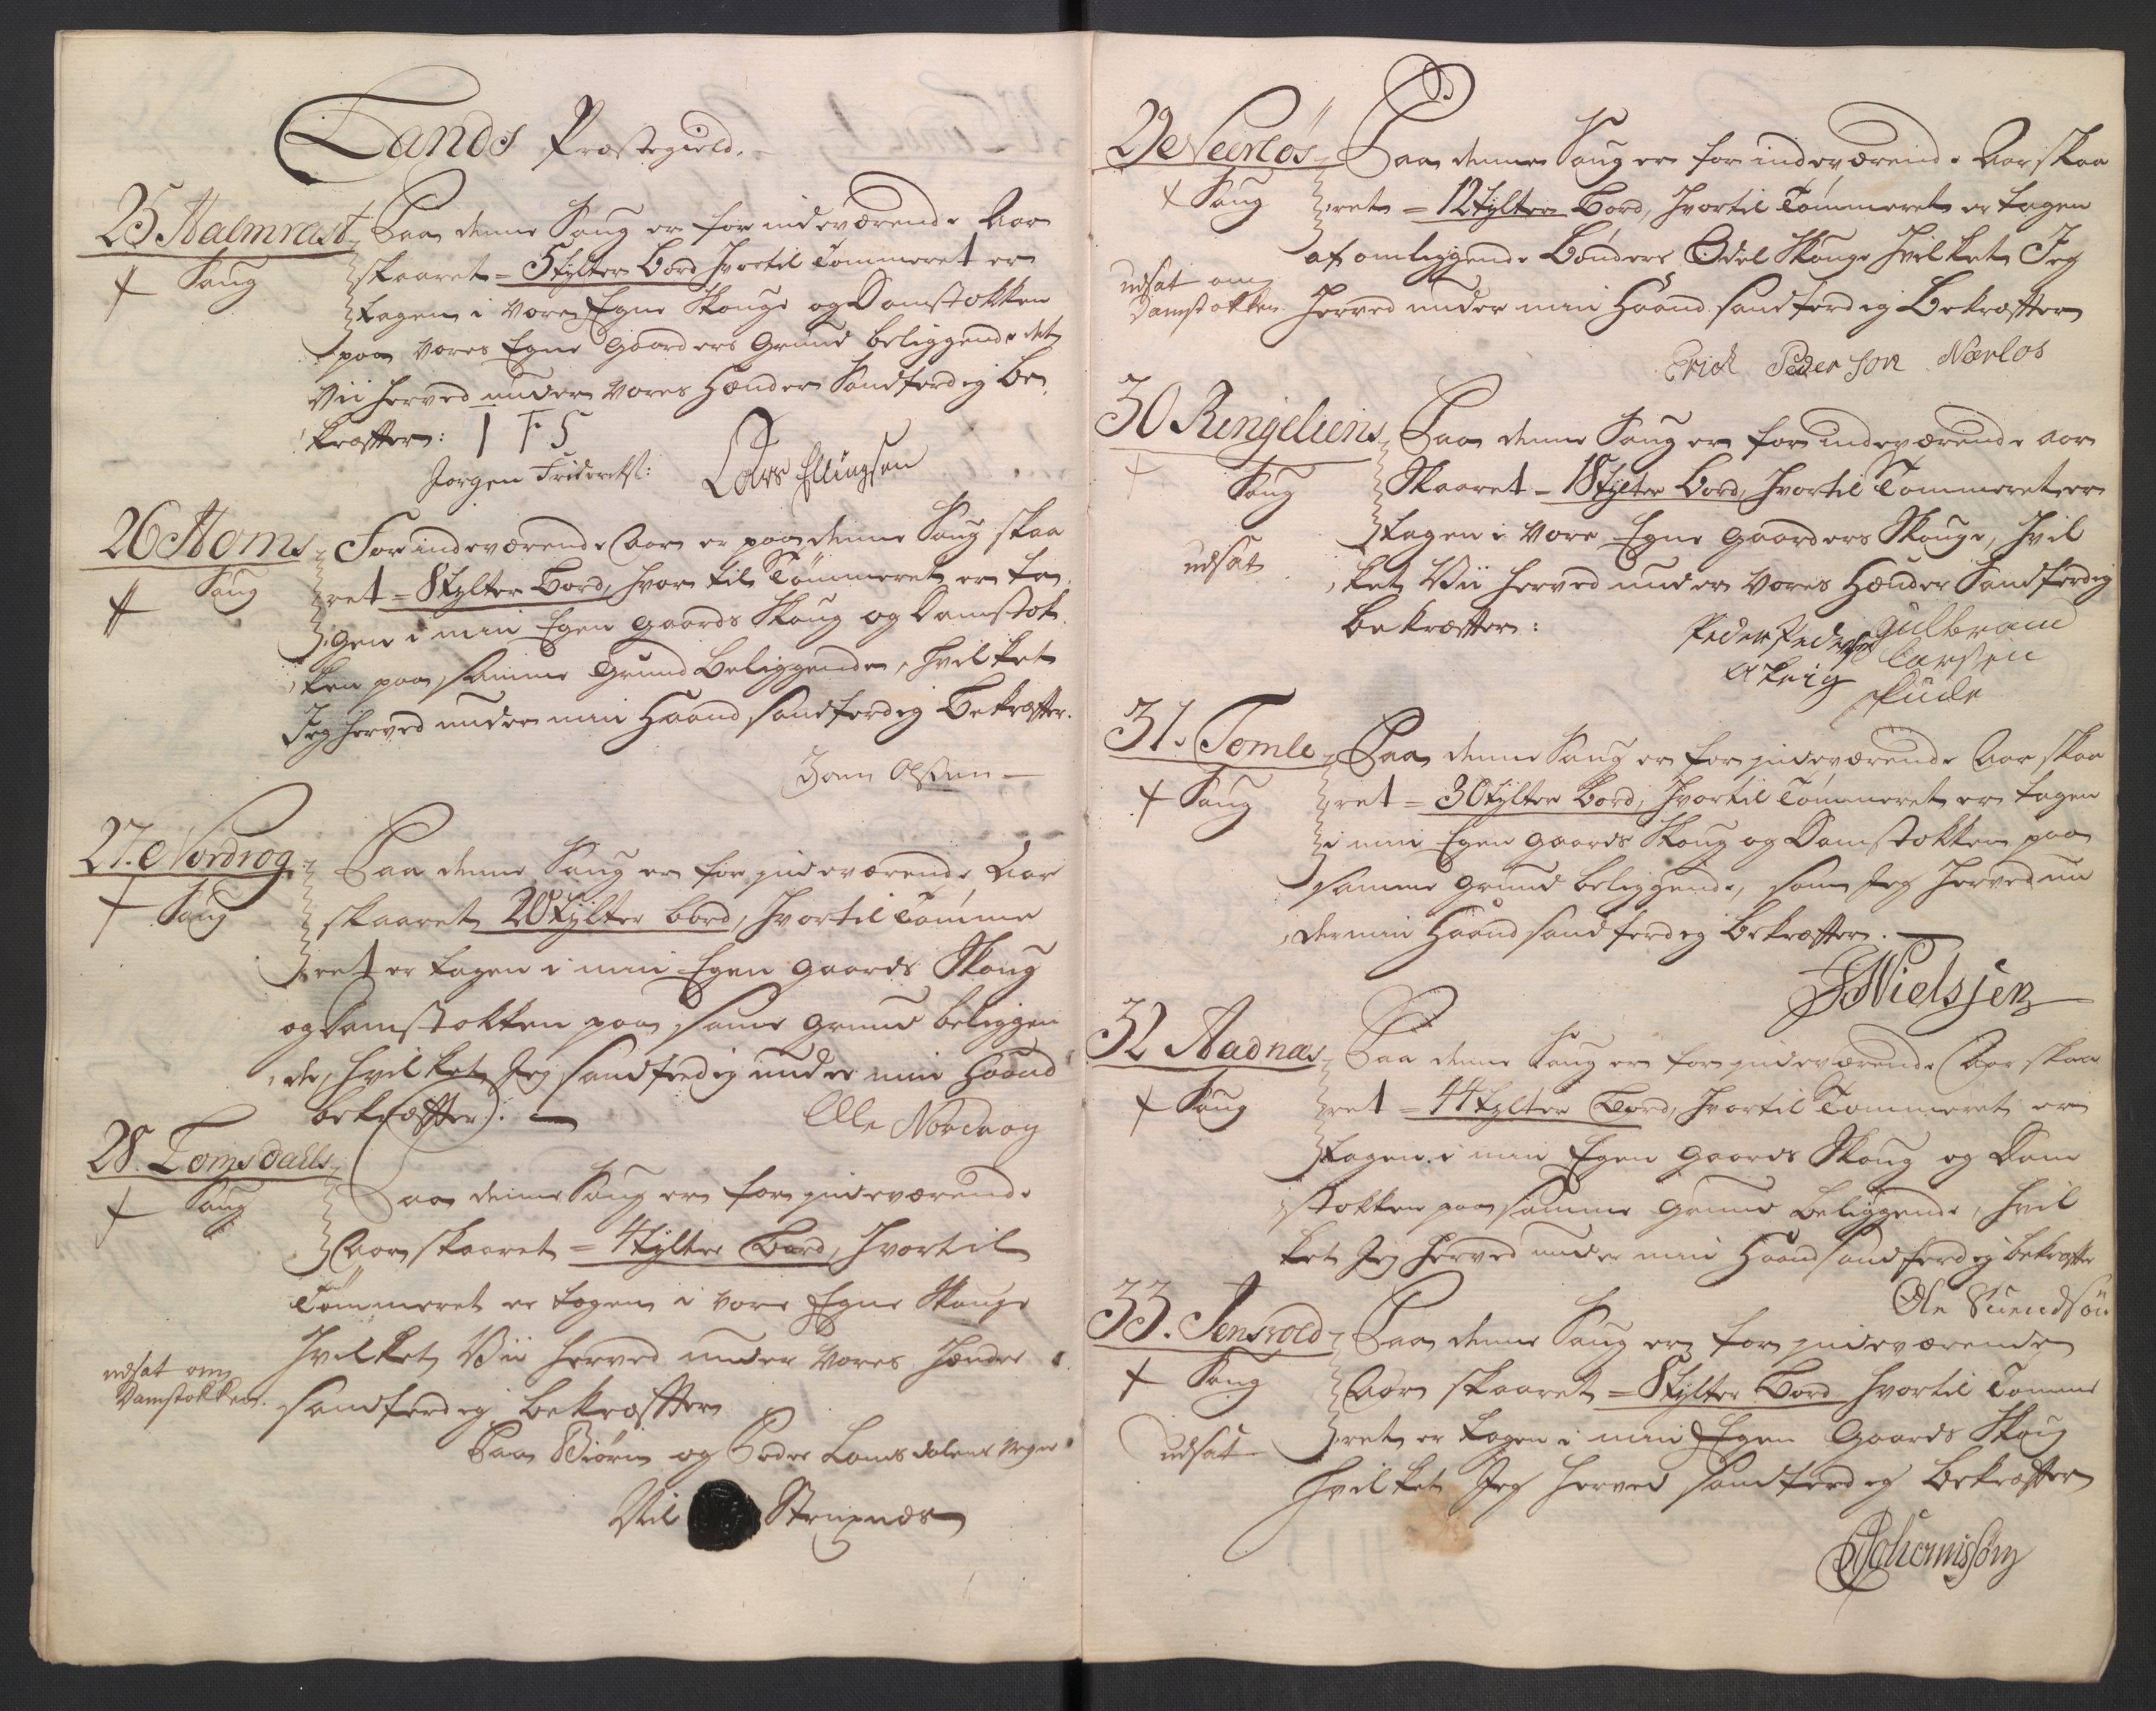 Lands Præstegield.
25 Halmrast
Saug
Paa denne Saug er for indeværende Aar
skaaret = 5 tylter Bord hvortil Tømmeret er
tagen i vore Egne Skouge og Damstokken
paa vores Egne Gaarders Grund beliggende det
Vii herved under vores Hænder Sandferdig be
kræffter:
I F S
Jørgen Friderichs:
Lars Ellingsen
26 Homs
Saug
For indeværende Aar er paa denne Saug skaa
ret = 8 tylter Bord, hvor til Tømmeret er ta
gen i min Egen gaards Skoug og Damstok
ken paa samme Grund Beliggende, hvilket
Jeg herved under min Haand sandferdig Bekræffter.
Joen Olssen
27. Nordrog
Saug
Paa denne Saug er for indeværende Aar
skaaret 20 tylter bord, hvortil Tømme
ret er tagen i min Egen gaards Skoug
og Damstokken paa samme grund beliggen
de, hvilket Jeg sandferdig under min Haand
bekræffter.
Olle Nordrog
28. Lomsdalls
Saug
Paa denne Saug er for indeværende
Aar skaaret = 4 tylter Bord, hvortil
Tømmeret er tagen i vore Egne Skouge
hvilket Vii herved under vores Hænder
udsat om
Damstokken.
sandferdig bekræffter
Paa Biørn og Peder Lomsdalens vegne
Nil Strupnæs
29 Neerløs
Saug
Paa denne Saug er for indeværende Aar skaa
ret = 12 tylter Bord, hvortil Tømmeret er tagen
af omliggende Bønders Odel Skouge hvilket Jeg
udsat om
Damstokken
herved under min Haand sandferdig Bekræffter
Erich Pederson Nærløs
30 Ringeliens
Saug
udsat
Paa denne Saug er for indeværende aar
Skaaret = 18 tylter Bord, hvortil Tømmeret er
tagen i vore Egne gaarders Skouge, hvil
ket Vii herved under vores Hænder Sandferdig
Bekræffter:
Peder Peders
Gulbrand
Larssen
31. Tomle
Saug
Paa denne Saug er for indeværende Aar skaa
ret = 30 tylter Bord, hvortil Tømmeret er tagen
i min Egen gaards Skoug og Damstokken paa
samme grund beliggende, som Jeg herved un
der min Haand sandferdig bekræffter.
Nielssen
32 Aadnæs
Saug
Paa denne Saug er for indeværende Aar skaa
ret = 44 tylter Bord, hvortil Tømmeret er
tagen i min Egen gaards Skoug og Dam
stokken paa samme grund beliggende, hvil
ket Jeg herved under min Haand sandferdig bekræffte
Ole Suendsøn
33. Jensvold
Saug
udsat
Paa denne Saug er for indeværende
Aar skaaret = 8 tylter Bord hvortil Tømme
ret er tagen i min Egen Gaards Skoug
hvilket Jeg herved sandferdig bekræffter